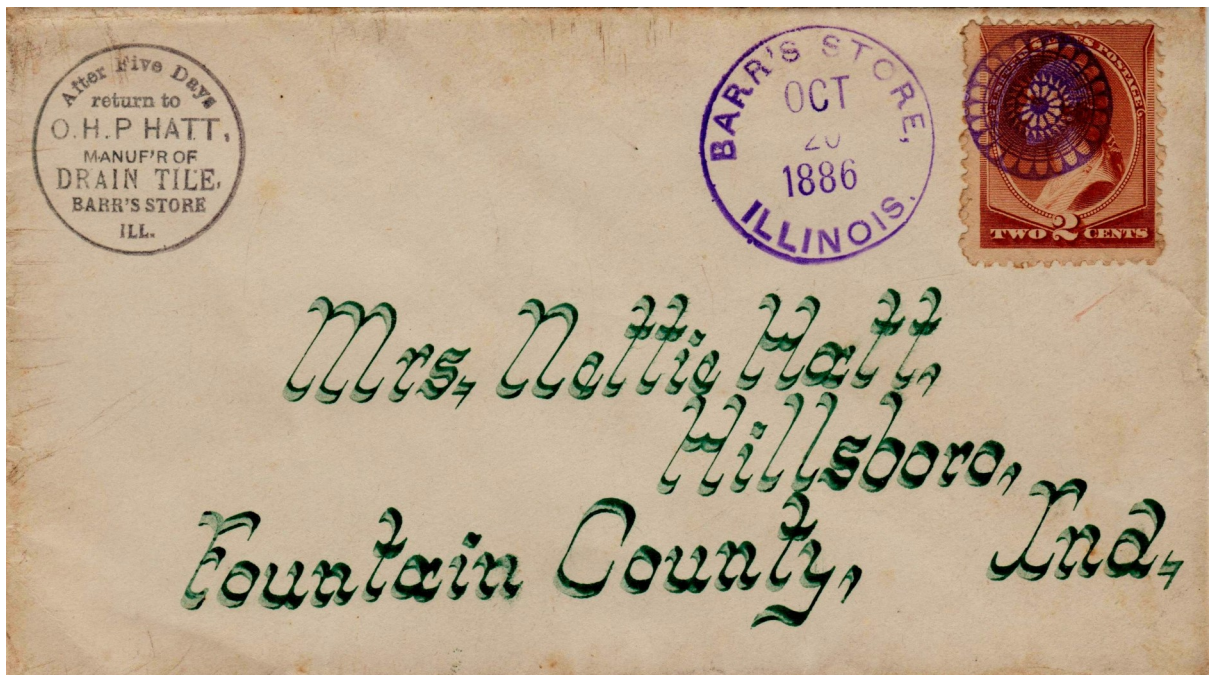 After Five Days
return to
O.H.P HATT,
MANUF'R OF
DRAIN TILE,
BARR'S STORE
ILL.
BARR'S STORE,
OCT
20
1886
ILLINOIS.
TWO 2 CENTS
Mrs, Nettie Hatt,
Hillsboro,
Fountain County, Ind,